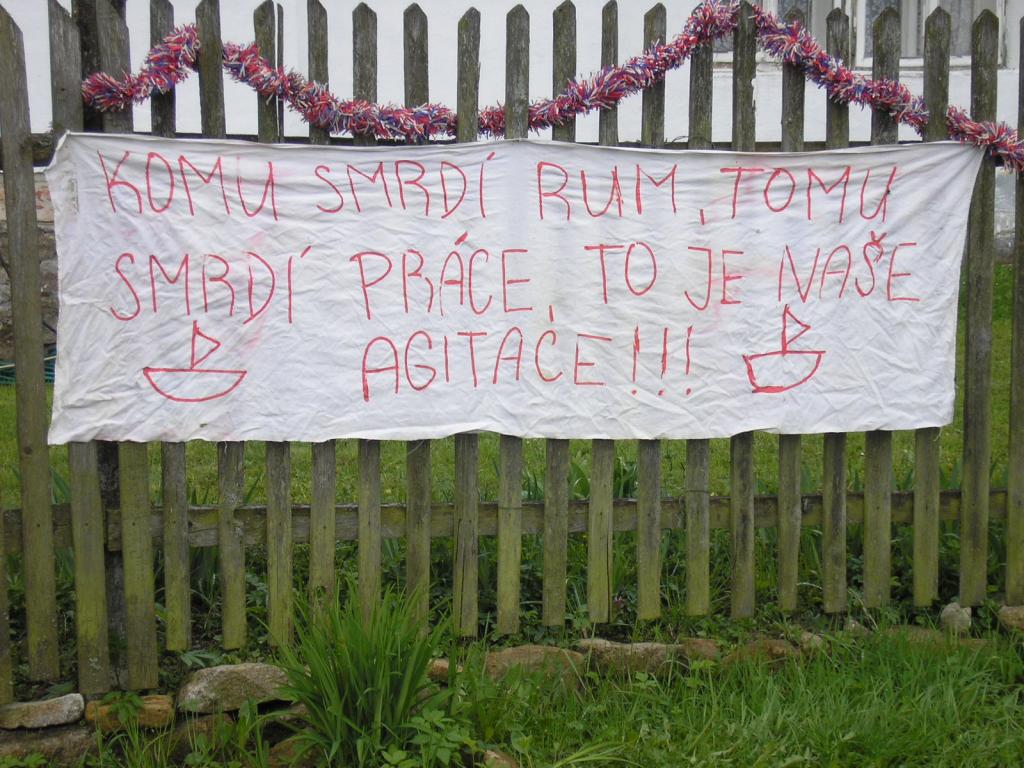 KOMU SMRDÍ RUM, TOMU
SMRDÍ PRÁCE, TO JE NAŠE
AGITAĆE!!!